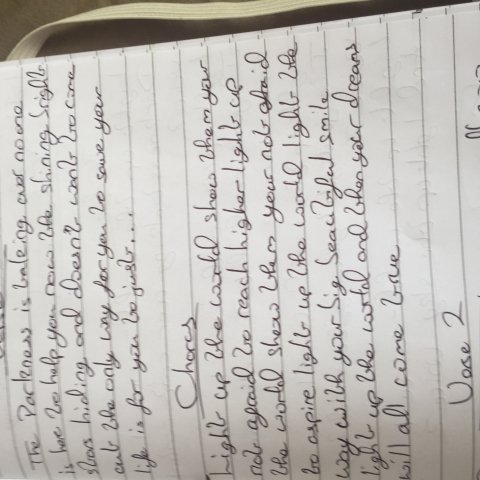 The Darkness is taking over no one
is here to help you now the shining bright
stars hiding and doesn't want to come
out the only way for you to save your
life is for you to just...
Chores
Light up the world show them your
not afraid to reach higher light up
the world show them your not afraid
to aspire light up the world light the
way with your big beautiful smile
light up the world and then your dreams
will all come true
Verse 2